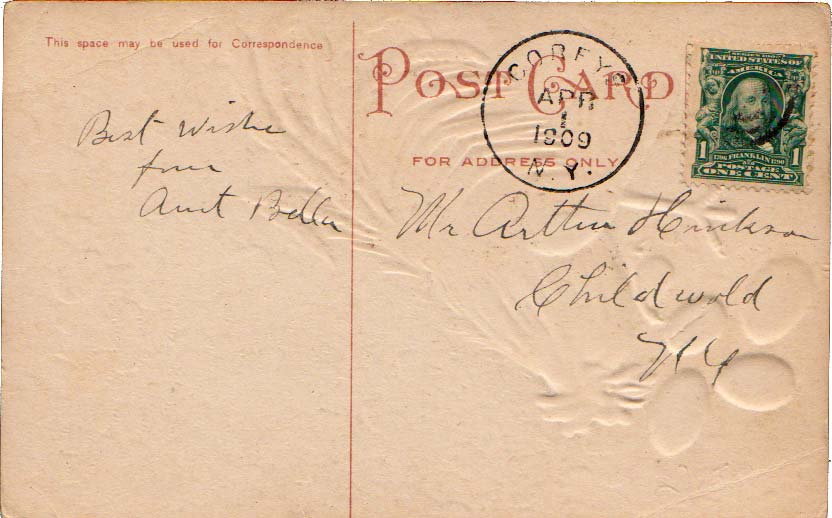 This space may be used for Correspondence
POST CARD
COREYS
APR
1
1909
N. Y.
FOR ADDRESS ONLY
SERIES 1902
UNITED STATES OF
AMERICA
1 1706 FRANKLIN 1790 1
POSTAGE
ONE CENT
Best Wishe
from
Aunt Bella
Mr Arthur Hinkson
Childwold
N Y